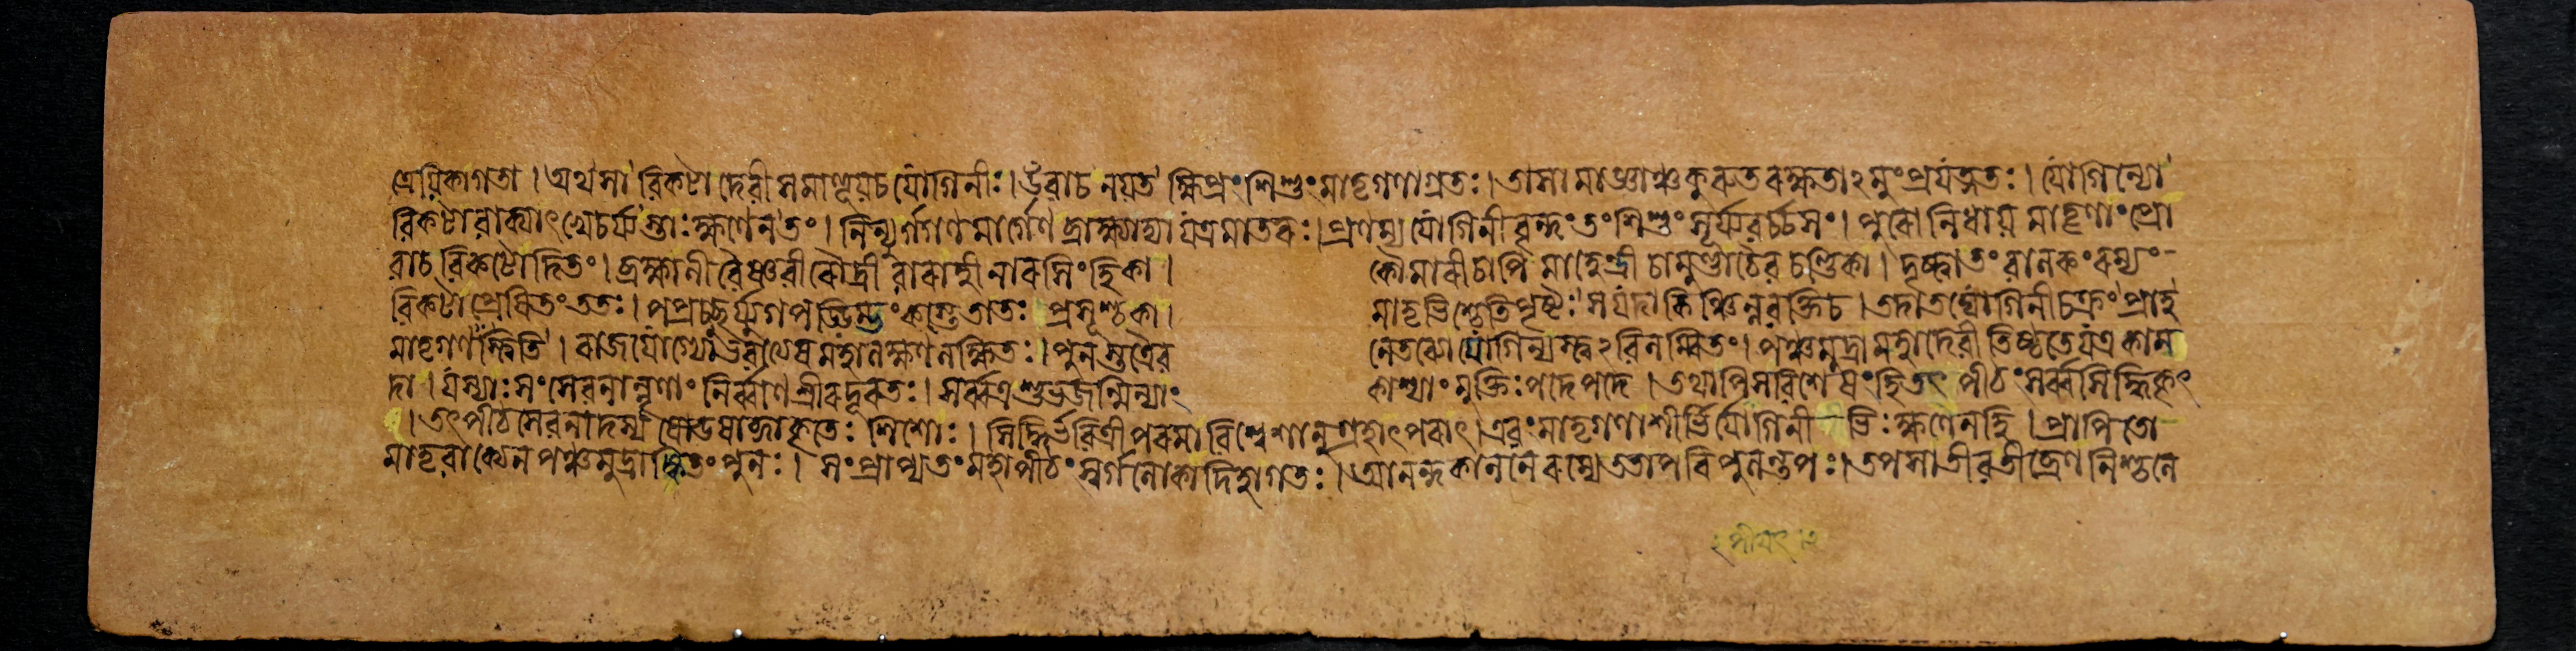 ত্রেয়িকাগতা । অথ সা বিকটা দেবী সমাহূয় চ যোগিনীঃ । উবাচ নয়ত ক্ষিপ্রং শিশুং মাতৃগণাগ্রতঃ । তাসামাজ্ঞাঞ্চ কুরুত রক্ষতাঽমুং প্রযত্নতঃ । যোগিন্যো
বিকটাবাক্যাৎ খেচর্য্যস্তাঃ ক্ষণেন তং । নিন্যুর্গগণমার্গেণ ব্রাহ্ম্যাদ্যা যত্র মাতরঃ । প্রণম্য যোগিনীবৃন্দং তং শিশুং সূর্য্যবর্চ্চসং । পুরো নিধায় মাতৃণাং প্রো
বাচ বিকটোদিতং । ব্রহ্মাণী বৈষ্ণবী রৌদ্রী বারাহী নারসিংহিকা । কৌমারী চাপি মাহেন্দ্রী চামুণ্ডা চৈব চণ্ডিকা । দৃষ্ট্বা তং বালকং রম্যং
বিকটাপ্রেষিতং ততঃ । পপ্রচ্ছুর্য্যুগপড্ডিম্ভং কস্তে তাতঃ প্রসূশ্চ কা । মাতৃভিশ্চেতি পৃষ্টঃ স যদা কিঞ্চিন্ন বক্তি চ । তদা তদ্যোগিনীচক্রং প্রাহ
মাতৃগণস্ত্বিতি । রাজযোগ্যো ভবত্যেষ মহালক্ষণলক্ষিতঃ । পুনস্তত্রৈব নেতব্যো যোগিন্যস্ত্বঽবিলম্বিতং । পঞ্চমুদ্রা মহাদেবী তিষ্ঠতে যত্র কাম
দা । যস্যাঃ সংসেবনান্নৃণাং নির্ব্বাণশ্রীরদূরতঃ । সর্ব্বত্র শুভজন্মিন্যাং কাশ্যাং মুক্তিঃ পদে পদে । তথাপি সবিশেষং হি তৎ পীঠং সর্ব্বসিদ্ধিকৃৎ
। তৎপীঠসেবনাদস্য ষোডষাব্দাকৃতেঃ শিশোঃ । সিদ্ধির্ভবিত্রী পরমা বিশ্বেশানুগ্রহাৎ পরাৎ । এবং মাতৃগণাশীর্ভির্যোগিনীভিঃ ক্ষণেন হি । প্রাপিতো
মাতৃবাক্যেন পঞ্চমুদ্রাঙ্কিতং পুনঃ । সংপ্রাপ্য তং মহাপীঠং স্বর্গলোকাদিহাগতঃ । আনন্দকাননে রম্যে ততাপ বিপুলন্তপঃ । তপসাতীব তীব্রেণ নিশ্চলে